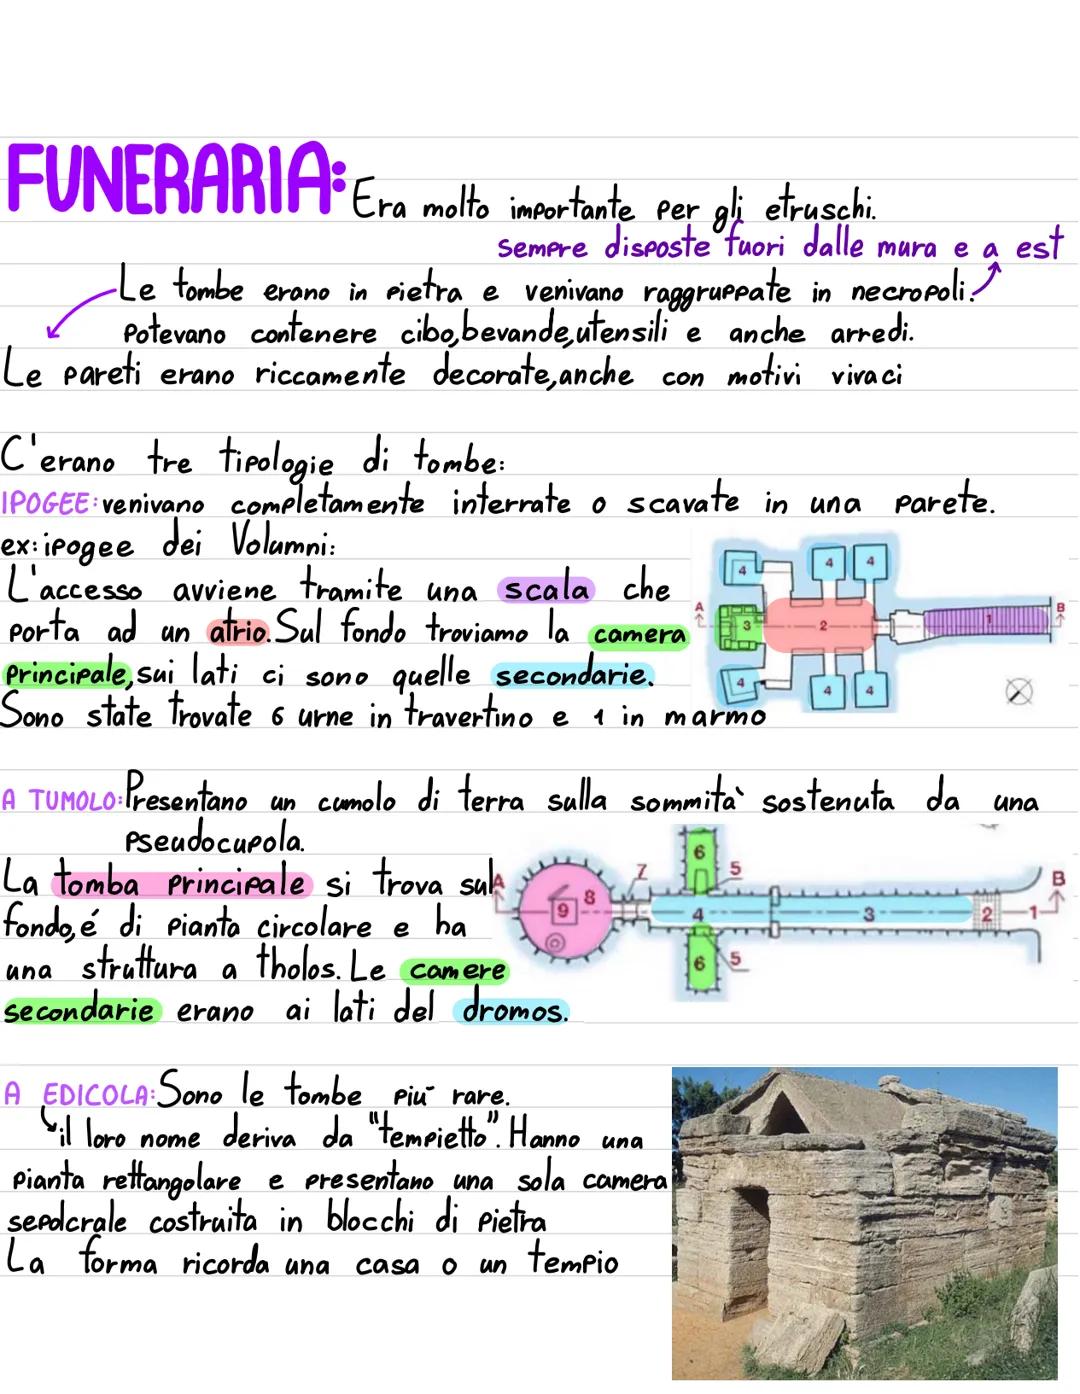 FUNERARIA: Era molto importante per gli etruschi.
sempre disposte fuori dalle mura e a est
Le tombe erano in pietra e venivano raggruppate in necropoli.
Potevano contenere cibo, bevande, utensili e anche arredi.
Le pareti erano riccamente decorate, anche con motivi vivaci
C'erano tre tipologie di tombe:
IPOGEE: venivano completamente interrate o scavate in una parete.
ex: ipogee dei Volumni:
L'accesso avviene tramite una scala che
porta ad un atrio. Sul fondo troviamo la camera
principale, sui lati ci sono quelle secondarie.
Sono state trovate 6 urne in travertino e 1 in marmo
4 4 4
A 3 2 1 B
4 4 4
A TUMOLO: Presentano un cumolo di terra sulla sommità sostenuta da una
pseudocupola.
La tomba principale si trova sul
fondo, é di pianta circolare e ha
una struttura a tholos. Le camere
secondarie erano ai lati del dromos.
6 5
7
A 9 8 4 3 2 1 B
6 5
A EDICOLA: Sono le tombe più rare.
il loro nome deriva da "tempietto". Hanno una
pianta rettangolare e presentano una sola camera
sepolcrale costruita in blocchi di pietra
La forma ricorda una casa o un tempio